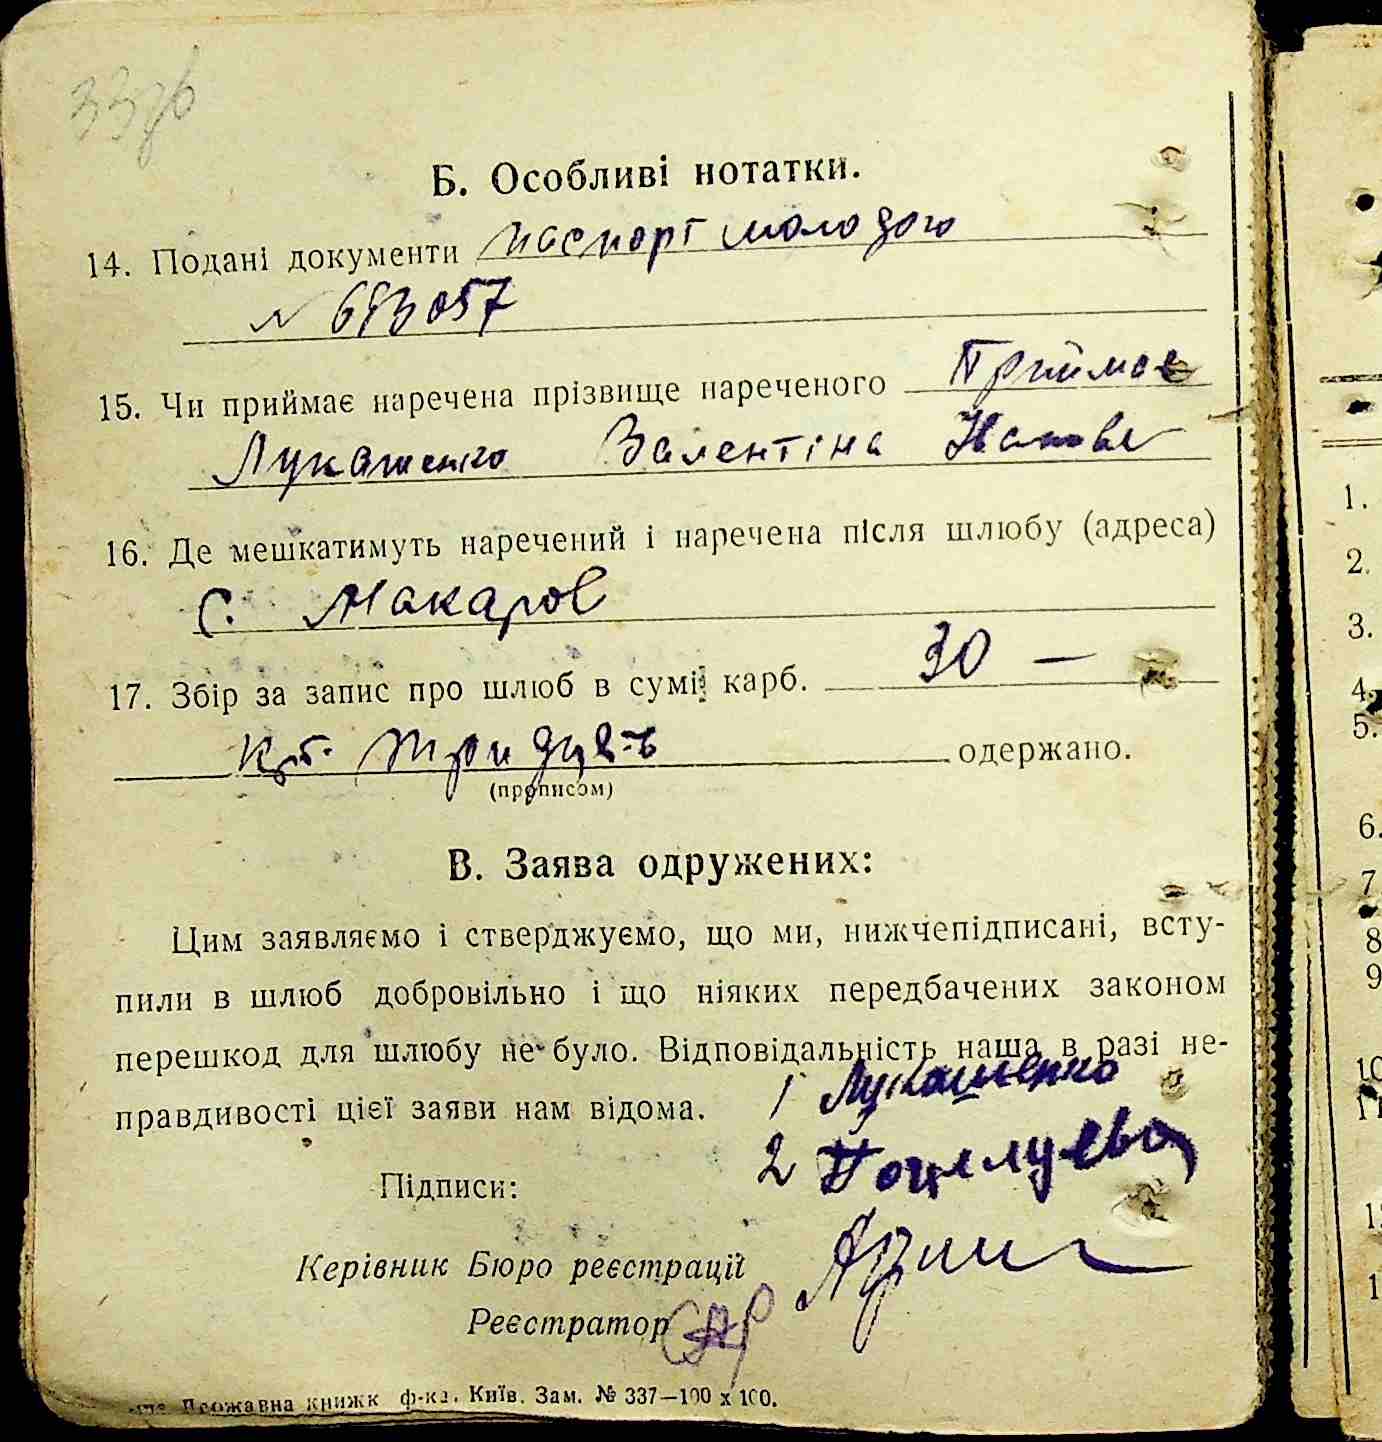 Б. Особливі нотатки.
14. Подані документи паспорт молодого
№ 693057
15. Чи приймає наречена прізвище нареченого Приймає
Лукашенко Валентіна Іванівн
16. Де мешкатимуть наречений і наречена після шлюбу (адреса)
С. Макаров
17. Збір за запис про шлюб в сумі карб. 30 —
Крб. Тридцять одержано.
(прописом)
В. Заява одружених:
Цим заявляємо і стверджуємо, що ми, нижчепідписані, всту-
пили в шлюб добровільно і що ніяких передбачених законом
перешкод для шлюбу не було. Відповідальність наша в разі не-
правдивості цієї заяви нам відома. 1 Лукашенко
2 Поцелуева
Підписи:
Керівник Бюро реєстрації
Реєстратор
Державна книжк ф-ка. Київ. Зам. № 337—100 x 100.
1.
2.
3.
4.
5.
6.
7
8
9
10
11